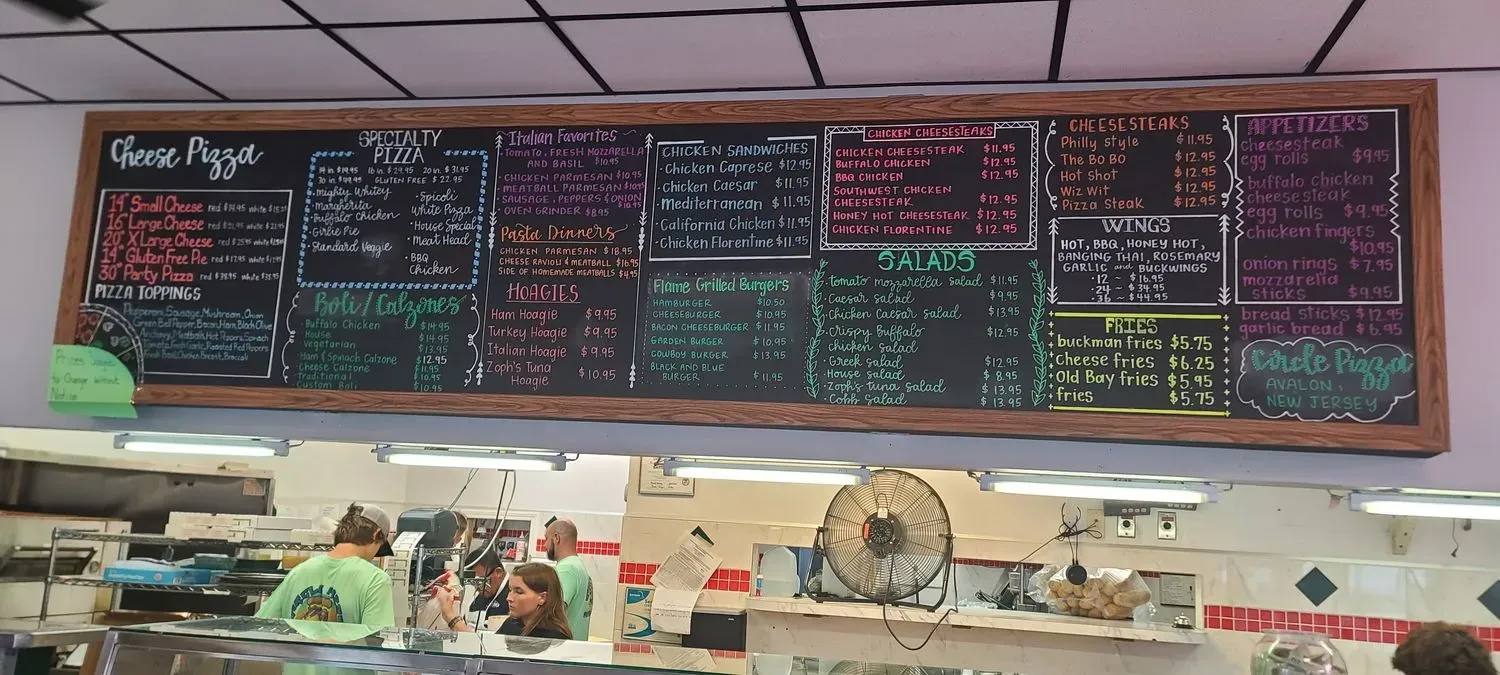 Cheese Pizza
14" Small Cheese red $14.95 white
16" Large Cheese red $21.95 white
20" X Large Cheese red $25.95 white
14" Gluten Free Pie red $17.95 white
30" Party Pizza red $38.95 white
PIZZA TOPPINGS
Pepperoni, Sausage, Mushroom, Onion
Green Bell Pepper, Bacon, Ham, Black Olive
Meatballs, Hot Peppers, Spinach
Tomato, Fresh Garlic, Roasted Red Peppers
Fresh Basil, Chicken Breast, Broccoli
Prices Subject
to Change Without
Notice
SPECIALTY
PIZZA
14 in $19.95 16 in $29.95 20 in $31.95
30 in GLUTEN FREE $22.95
• Mighty Whitey
• Margherita
• Buffalo Chicken
• Girlie Pie
• Standard Veggie
• Spicoli
White Pizza
• House Special
• Meat Head
• BBQ
Chicken
Boli/Calzones
Buffalo Chicken $14.95
House $14.95
Vegetarian $13.95
Ham & Spinach Calzone $12.95
Cheese Calzone $11.95
Traditional $10.95
Custom Boli $10.95
Italian Favorites
• TOMATO, FRESH MOZZARELLA
AND BASIL $10.95
• CHICKEN PARMESAN $10.95
• MEATBALL PARMESAN $10.95
• SAUSAGE, PEPPERS & ONION
$10.95
• OVEN GRINDER $8.95
Pasta Dinners
CHICKEN PARMESAN $18.95
CHEESE RAVIOLI & MEATBALL $16.95
SIDE OF HOMEMADE MEATBALLS $4.95
HOAGIES
Ham Hoagie $9.95
Turkey Hoagie $9.95
Italian Hoagie $9.95
Zoph's Tuna
Hoagie $10.95
CHICKEN SANDWICHES
• Chicken Caprese $12.95
• Chicken Caesar $11.95
• Mediterranean $11.95
• California Chicken $11.95
• Chicken Florentine $11.95
Flame Grilled Burgers
HAMBURGER $10.50
CHEESEBURGER $10.95
BACON CHEESEBURGER $11.95
GARDEN BURGER $10.95
COWBOY BURGER $13.95
BLACK AND BLUE
BURGER $11.95
CHICKEN CHEESESTEAKS
CHICKEN CHEESESTEAK $11.95
BUFFALO CHICKEN $12.95
BBQ CHICKEN $12.95
SOUTHWEST CHICKEN
CHEESESTEAK $12.95
HONEY HOT CHEESESTEAK $12.95
CHICKEN FLORENTINE $12.95
SALADS
• Tomato mozzarella salad $11.95
• Caesar salad $9.95
• Chicken Caesar salad $13.95
• Crispy Buffalo $12.95
chicken salad
• Greek salad $12.95
• House salad $8.95
• Zoph's tuna salad $13.95
• Cobb salad $13.95
CHEESESTEAKS
Philly style $11.95
The Bo Bo $12.95
Hot Shot $12.95
Wiz Wit $12.95
Pizza Steak $12.95
WINGS
HOT, BBQ, HONEY HOT,
BANGING THAI, ROSEMARY
GARLIC and BUCKWINGS
• 12 ~ $16.95
• 24 ~ $34.95
• 36 ~ $44.95
FRIES
buckman fries $5.75
Cheese fries $6.25
Old Bay fries $5.95
fries $5.75
APPETIZERS
cheesesteak
egg rolls $9.95
buffalo chicken
cheesesteak
egg rolls $9.95
chicken fingers
$10.95
onion rings $7.95
mozzarella
sticks $9.95
bread sticks $12.95
garlic bread $6.95
Circle Pizza
AVALON,
NEW JERSEY